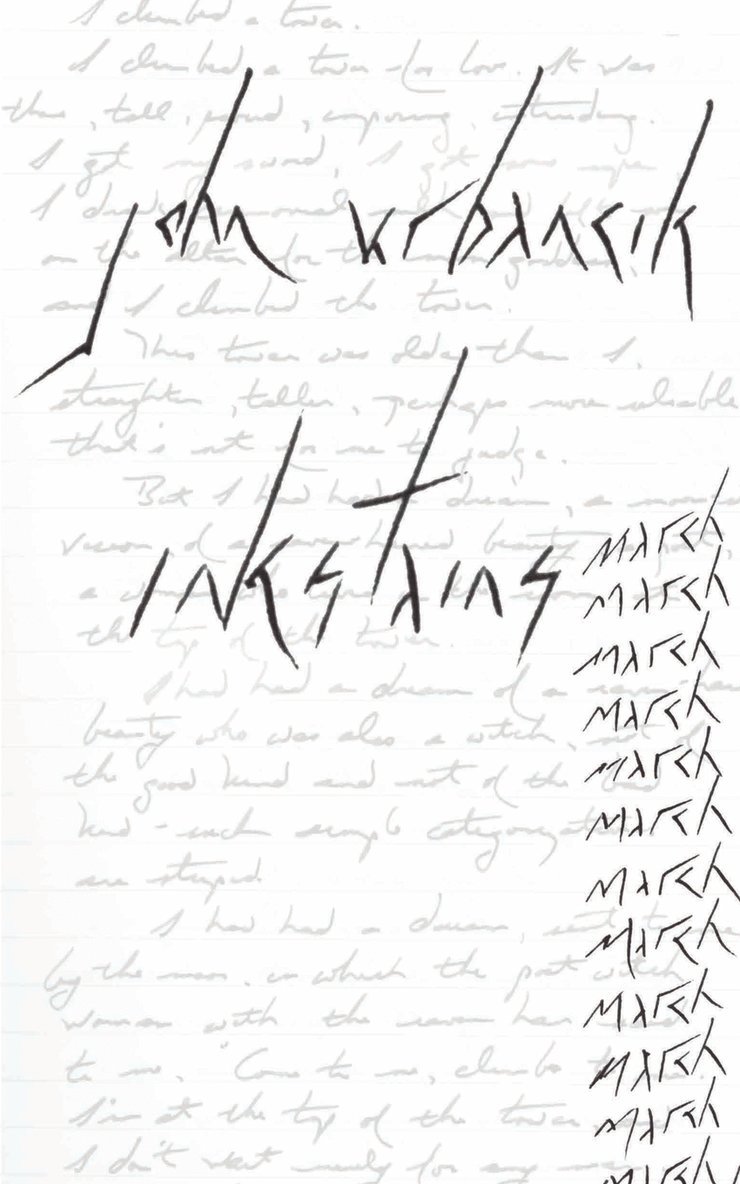 I climbed a tower.
I climbed a tower for love. It was
tall, proud, imposing,
I got my sword, I got some rope
john urbancik
I
on the altar for the moon goddess,
and I climbed the tower.
This tower was older than I,
straighter, taller, perhaps more valuable
that's not for me to judge.
inkstains
But I had had a dream, a
vision of a raven haired beauty
march
a
march
the top of the tower.
march
I had had a dream of a raven-haired
march
beauty who was also a witch, not of
march
the good kind and not of the bad
march
kind - such simple categorizations
march
are stupid.
march
I had had a dream, sent to me
march
by the moon, in which the part witch
march
woman with the raven hair said
march
to me, "Come to me, climb to me.
march
I'm at the top of the tower
march
I don't wait merely for any man